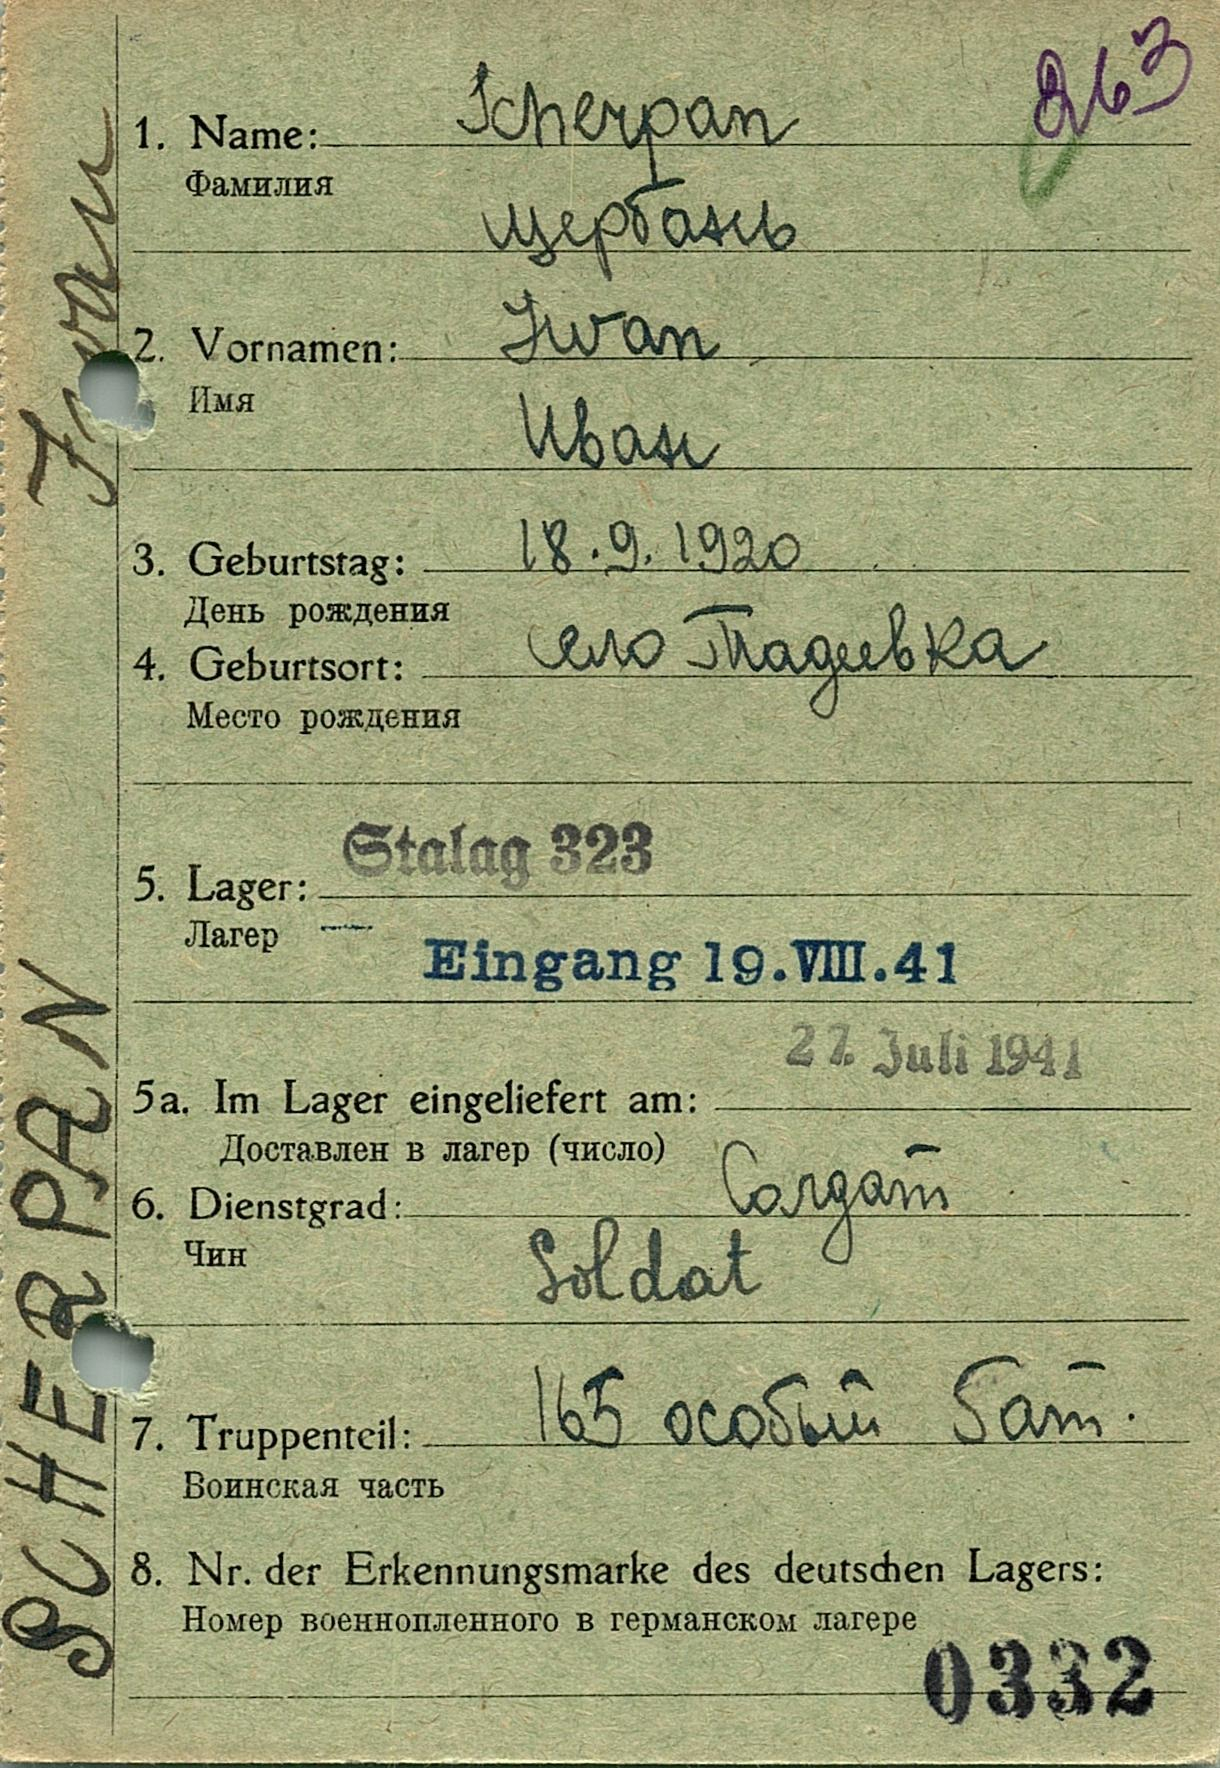 263
1. Name: Scherpan
Фамилия
Щербань
2. Vornamen: Iwan
Имя
Иван
3. Geburtstag: 18.9.1920
День рождения
4. Geburtsort: село Тадеевка
Место рождения
Stalag 323
5. Lager:
Лагер
Eingang 19.VIII.41
27. Juli 1941
5a. Im Lager eingeliefert am:
Доставлен в лагер (число)
6. Dienstgrad: Солдат
Чин
Soldat
7. Truppenteil: 165 особый бат.
Воинская часть
8. Nr. der Erkennungsmarke des deutschen Lagers:
Номер военнопленного в германском лагере
0332
SCHERPAN Iwan